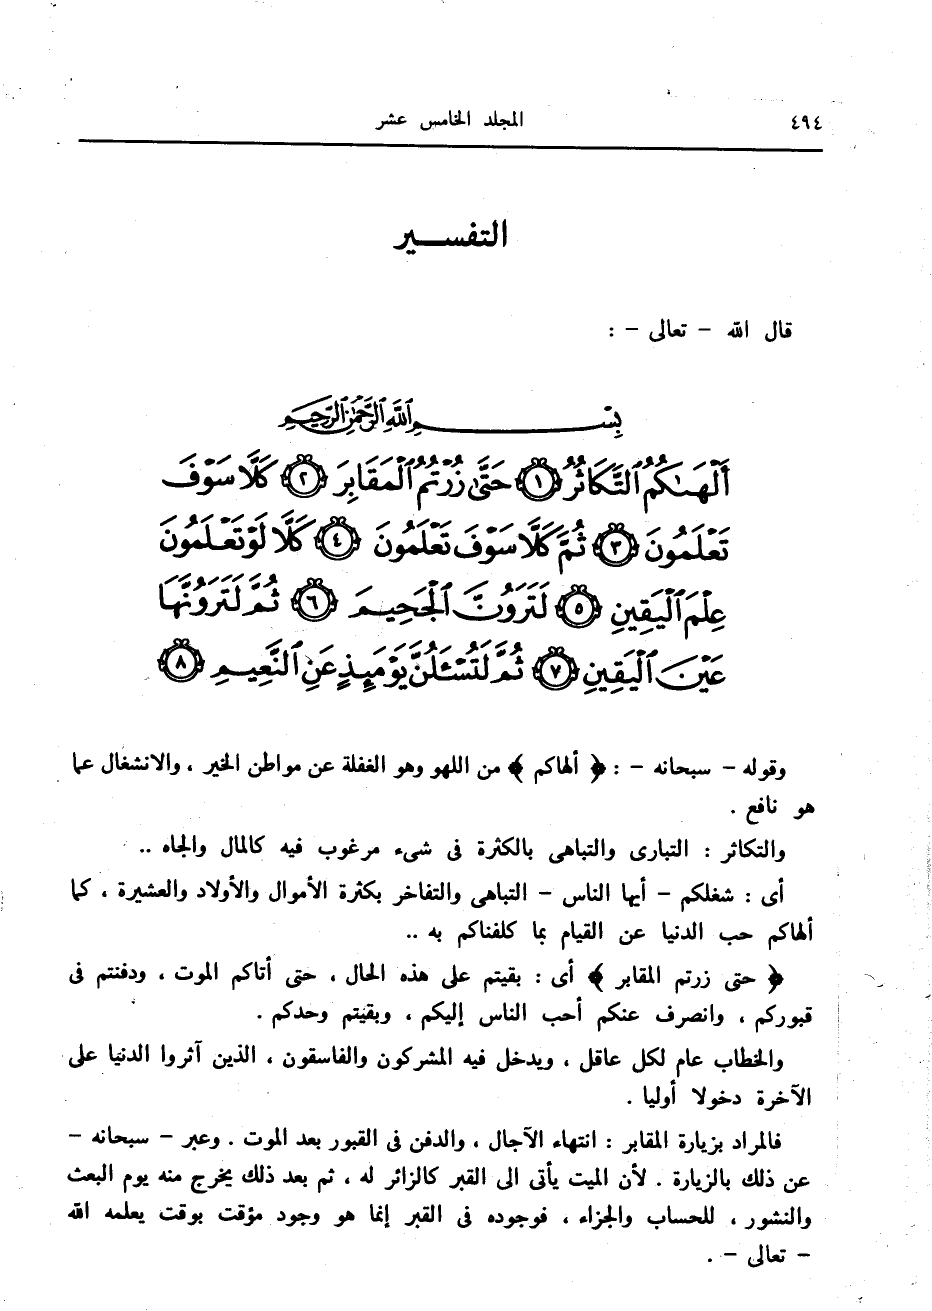 ٤٩٤ المجلد الخامس عشر
التفسير
قال الله – تعالى – :
بِسْمِ اللَّهِ الرَّحْمَٰنِ الرَّحِيمِ
أَلْهَىٰكُمُ ٱلتَّكَاثُرُ ١ حَتَّىٰ زُرْتُمُ ٱلْمَقَابِرَ ٢ كَلَّا سَوْفَ
تَعْلَمُونَ ٣ ثُمَّ كَلَّا سَوْفَ تَعْلَمُونَ ٤ كَلَّا لَوْ تَعْلَمُونَ
عِلْمَ ٱلْيَقِينِ ٥ لَتَرَوُنَّ ٱلْجَحِيمَ ٦ ثُمَّ لَتَرَوُنَّهَا
عَيْنَ ٱلْيَقِينِ ٧ ثُمَّ لَتُسْـَٔلُنَّ يَوْمَئِذٍ عَنِ ٱلنَّعِيمِ ٨
وقوله – سبحانه – : ﴿ ألهاكم ﴾ من اللهو وهو الغفلة عن مواطن الخير ، والانشغال عما
هو نافع .
والتكاثر : التبارى والتباهى بالكثرة فى شىء مرغوب فيه كالمال والجاه ..
أى : شغلكم – أيها الناس – التباهى والتفاخر بكثرة الأموال والأولاد والعشيرة ، كما
ألهاكم حب الدنيا عن القيام بما كلفناكم به ..
﴿ حتى زرتم المقابر ﴾ أى : بقيتم على هذه الحال ، حتى أتاكم الموت ، ودفنتم فى
قبوركم ، وانصرف عنكم أحب الناس إليكم ، وبقيتم وحدكم .
والخطاب عام لكل عاقل ، ويدخل فيه المشركون والفاسقون ، الذين آثروا الدنيا على
الآخرة دخولا أوليا .
فالمراد بزيارة المقابر : انتهاء الآجال ، والدفن فى القبور بعد الموت . وعبر – سبحانه –
عن ذلك بالزيارة . لأن الميت يأتى الى القبر كالزائر له ، ثم بعد ذلك يخرج منه يوم البعث
والنشور ، للحساب والجزاء ، فوجوده فى القبر إنما هو وجود مؤقت بوقت يعلمه الله
– تعالى – .